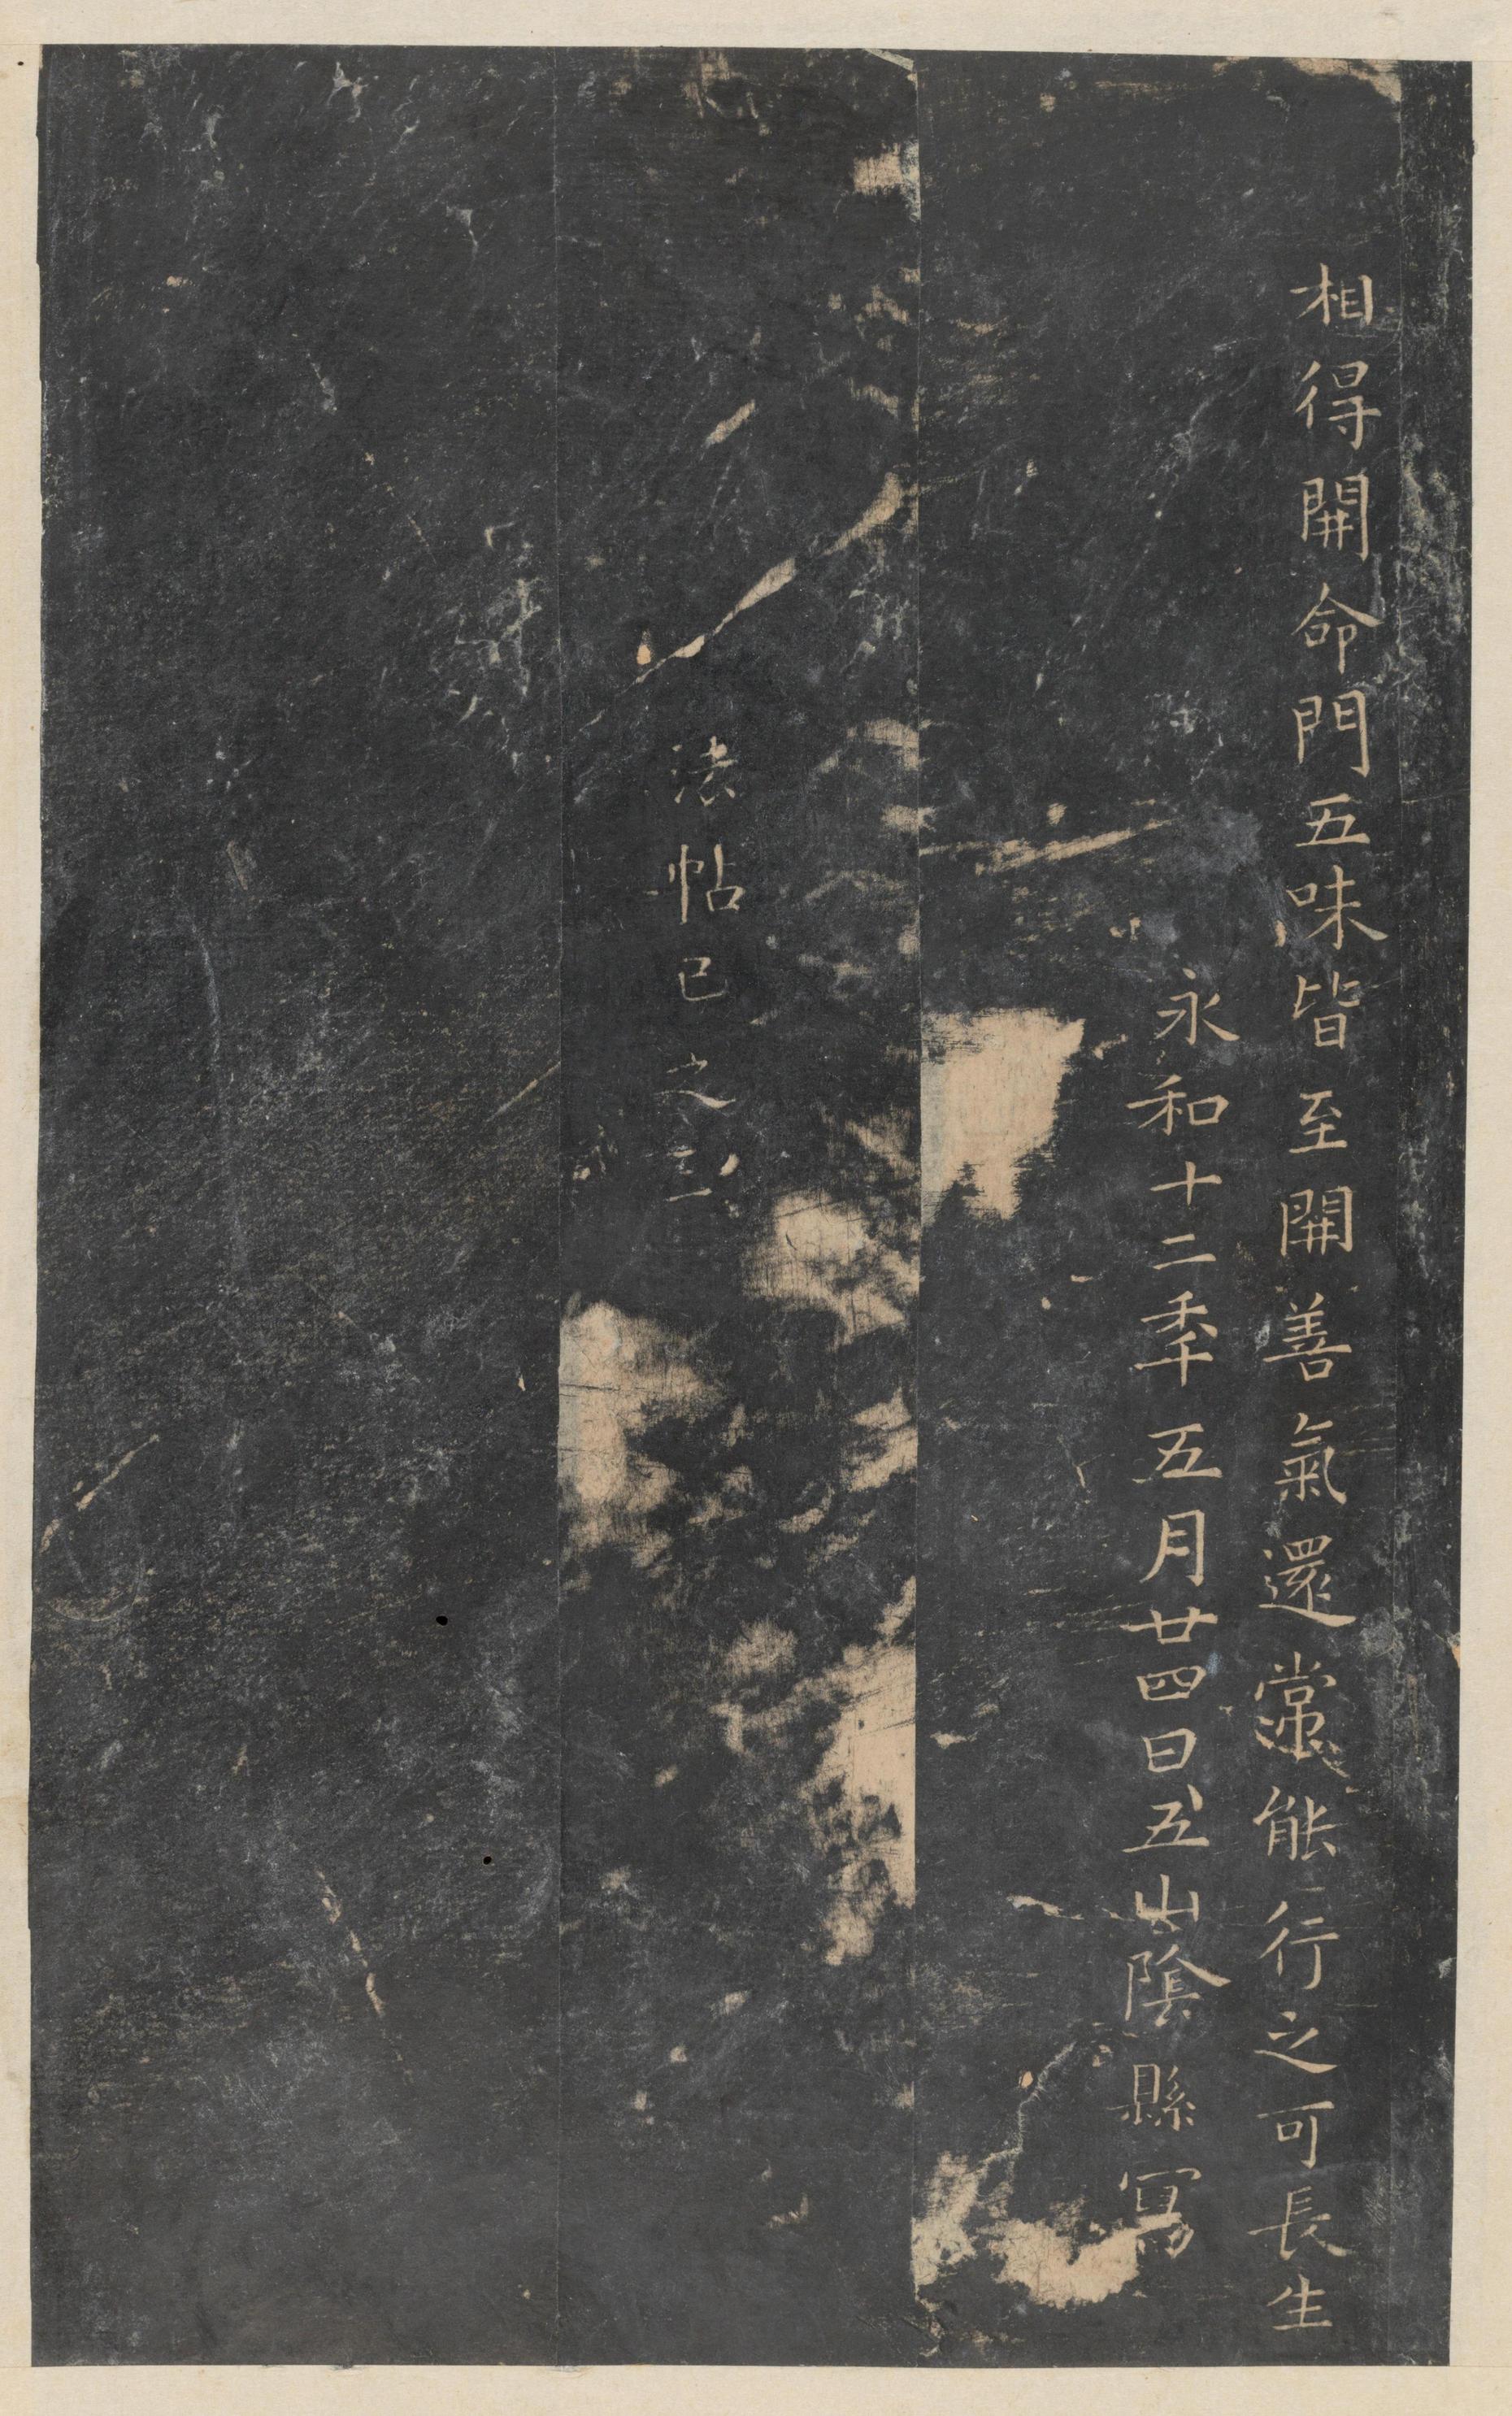 相得開命門五味皆至開善氣還常能行之可長生
永和十二秊五月廿四日五山陰縣寫
法帖已之三
永